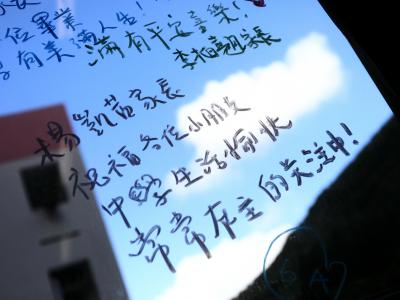 位畢業
有美滿人生!
滿有平安喜樂!
李柏翹家長
楊凱茵家長
祝福各位小朋友
中學生活愉快
常常在主的关注中!
6A